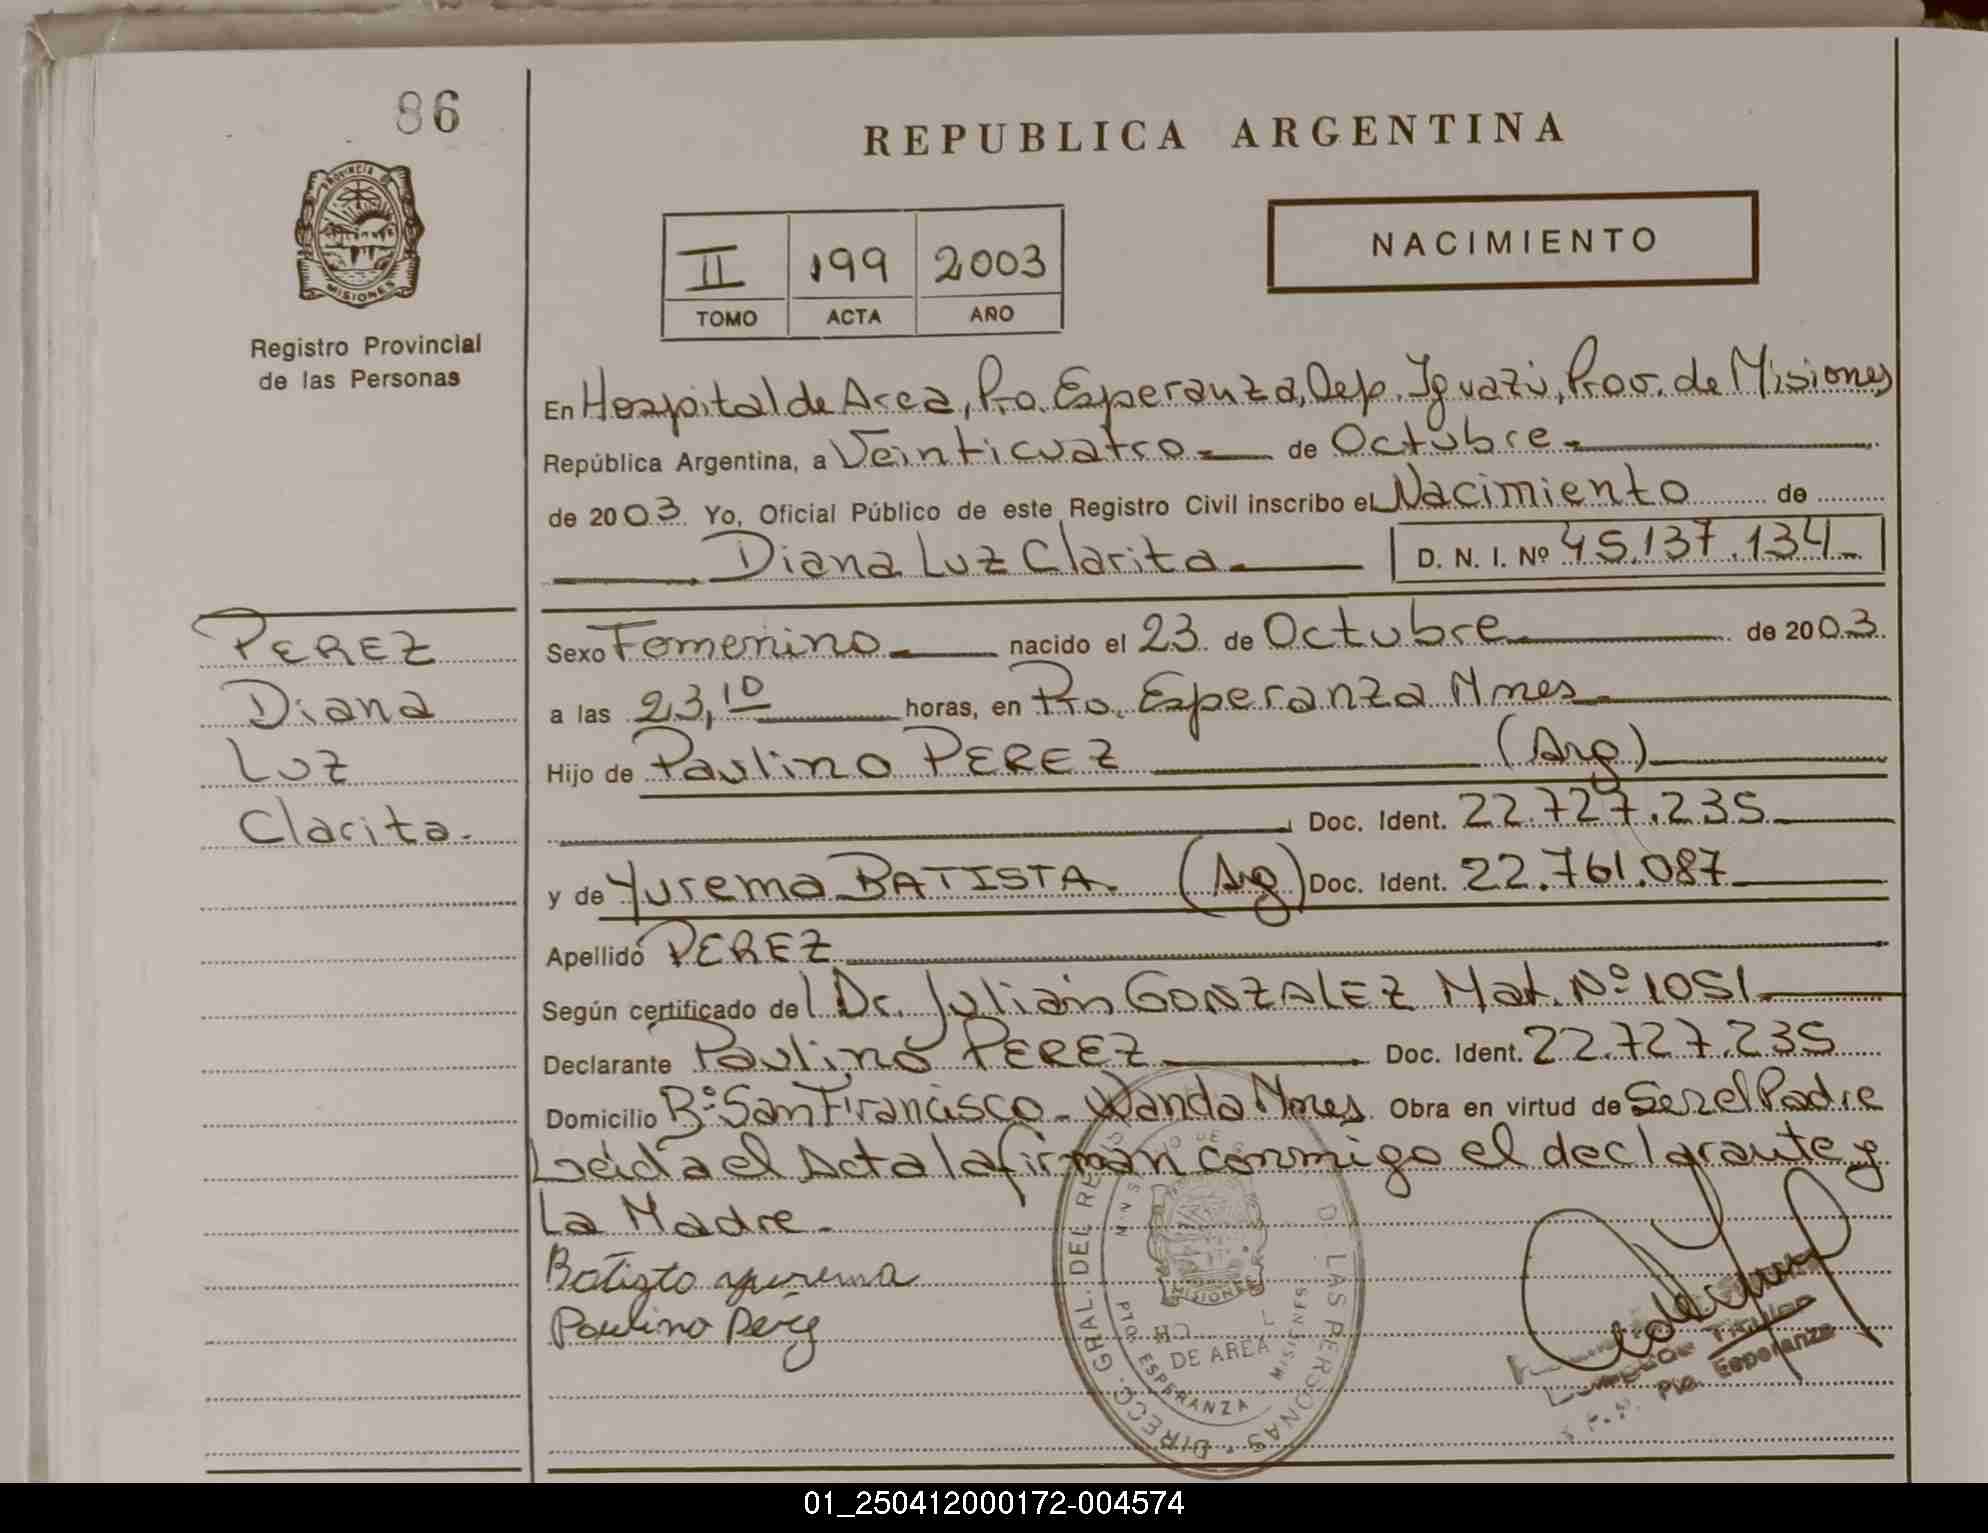 86
REPUBLICA ARGENTINA
PROVINCIA DE
MISIONES
Registro Provincial
de las Personas
II 199 2003
TOMO ACTA AÑO
NACIMIENTO
En Hospital de Area, Pto. Esperanza, Dep. Iguazú, Prov. de Misiones
República Argentina, a Veinticuatro de Octubre
de 2003 Yo, Oficial Público de este Registro Civil inscribo el Nacimiento de
Diana Luz Clarita D. N. I. Nº 45.137.134
PEREZ
Diana
Luz
Clarita.
Sexo Femenino nacido el 23 de Octubre de 2003
a las 23,10 horas, en Pto. Esperanza Mnes
Hijo de Paulino PEREZ (Arg)
Doc. Ident. 22.727.235
y de Yurema BATISTA (Arg) Doc. Ident. 22.761.087
Apellido PEREZ
Según certificado del Dr. Julián GONZALEZ Mat. Nº 1051
Declarante Paulino PEREZ Doc. Ident. 22.727.235
Domicilio Bº San Francisco - Wanda Mnes Obra en virtud de Ser el Padre
Leída el Acta la firman conmigo el declarante y
La Madre.
Batista yurema
Paulino Pérez
DIRECC. GRAL. DEL REG D. LAS PERSONAS
MISIONES
DE AREA
PTO. ESPERANZA - MISIONES
Titular
Pto. Esperanza
01_250412000172-004574